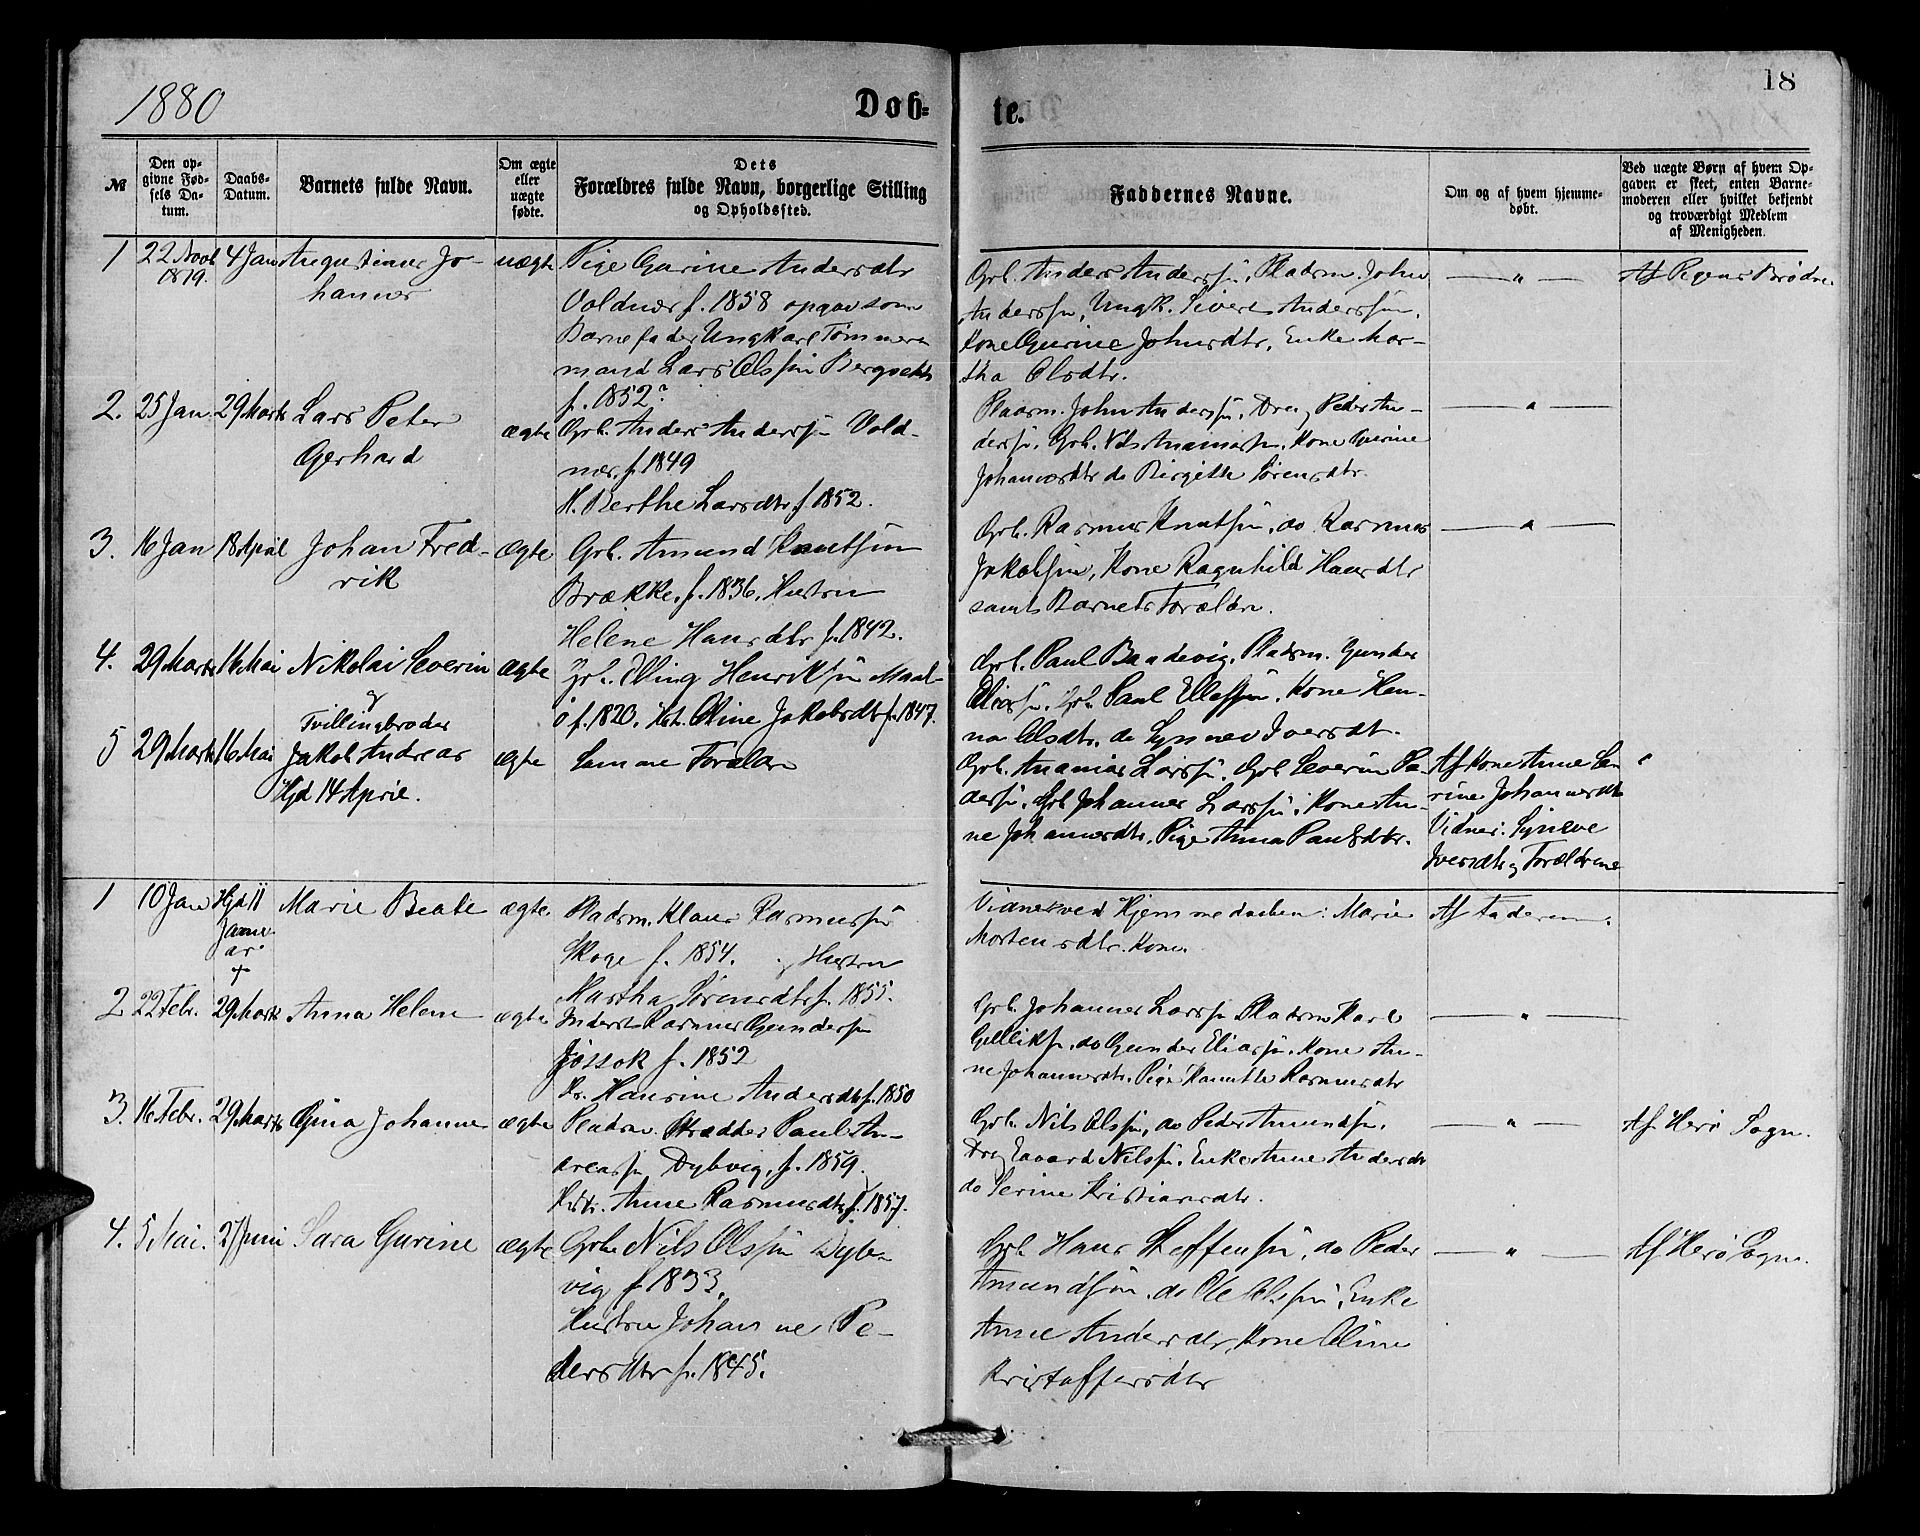 1880
Døb-
te.
18
№
Den op-
givne Fød-
sels Da-
tum.
Daabs-
Datum.
Barnets fulde Navn.
Om ægte
eller
uægte
fødte.
Dets
Forældres fulde Navn, borgerlige Stilling
og Opholdssted.
Faddernes Navne.
Om og af hvem hjemme-
døbt.
Ved uægte Børn af hvem Op-
gaven er skeet, enten Barne-
moderen eller hvilket bekjendt
og troværdigt Medlem
af Menigheden.
1
22 Novb
1879.
4 Jan
Augustinus Jo-
hannes
uægte
Pige Gurine Andersdtr
Voldnæs f. 1858 opgav som
Barnefader Ungkarl Tømmer
mand Lars Olssøn
f. 1852?
Grb. Anders Anderssøn, Pladsm. John
Anderssøn, Ungk. Sivert Anderssøn,
Kone Gurine Johnsdtr, Enke Mar-
tha Olsdtr.
— " —
Af Pigens Brødre.
2.
25 Jan.
29 Marts
Lars Peter
Gerhard
ægte
Grb. Anders Anderssøn Vold-
næs, f. 1849
H. Berthe Larsdtr f. 1852.
Pladsm. John Anderssøn, Dreng Peder An-
derssøn, Grb. Nils Ananiassøn, Kone Gurine
Johannesdtr do Birgitte Sørensdtr.
— " —
3.
16 Jan
18 April
Johan Fred-
rik
Ægte
Grb. Amund Knutssøn
Brække, f. 1836, Hustru
Helene Hansdtr f. 1842.
Grb. Rasmus Knutssøn, do Rasmus
Jakobssøn, Kone Ragnhild Hansdtr
samt Barnets Forældre.
— " —
4.
29 Marts
16 Mai
Nikolai Severin
ægte
Grb. Elling Henrikssøn Maal-
ø f. 1820, Hst. Oline Jakobsdtr f. 1847.
Grb. Paul Baadsvig, Pladsm. Gunder
Eliassøn, Grb. Paul Ellefssøn, Kone Han-
na Olsdtr, do Synnev Iversdtr.
5
29 Marts
16 Mai
og
Tvillingbroder
Jakob Andreas
Hjd 14 April.
ægte
Samme Forældre
Grb. Ananias Larssøn, Grb Severin Pe-
derssøn, Grb Johannes Larssøn, Kone An-
ne Johannesdtr, Pige Anna Paulsdtr.
Af Kone Anne Se-
rine Johannesdtr
Vidner: Synneve
Iversdtr og Forældrene
"
1
10 Jan
Hjd 11
Janu-
ar
+
Marie Beate
ægte.
Pladsm. Klaus Rasmussøn
Skoge f. 1854. og Hustru
Martha Sørensdtr f. 1855.
Vidner ved Hjemmedaaben: Marie
Mortensdtr. Kone.
Af Faderen.
2
22 Febr.
29 Marts
Anna Helene
ægte
Inderst Rasmus Gunderssøn
Jøssok f. 1852
Hr. Hansine Andersdtr f. 1850
Grb. Johannes Larssøn Pladsm Karl
Gullikss. do Gunder Eliassøn, Kone An-
ne Johannesdtr. Pige Rasmusdtr
— " —
3.
16 Febr.
29 Marts
Gina Johanne
ægte
Pladsm. Skrædder Paul An-
dreassøn Dybvig, f. 1859.
Hstr. Anne Rasmusdtr f. 1857.
Grb. Nils Olssøn, do Peder Amundssøn,
Dreng Edvard Nilssøn, Enke Anne Andersdtr
do Serine Kristiansdtr.
— " —
Af Herø Sogn.
4.
5 Mai.
27 Juni
Sara Gurine
ægte
Grb. Nils Olssøn Dyb-
vig f 1833,
Hustru Johanne Pe-
dersdtr f. 1845.
Grb. Hans Steffenssøn, do Peder
Amundssøn, do Ole Olssøn, Enke
Anne Andersdtr, Kone Oline
Kristoffersdtr
— " —
Af Herø Sogn.